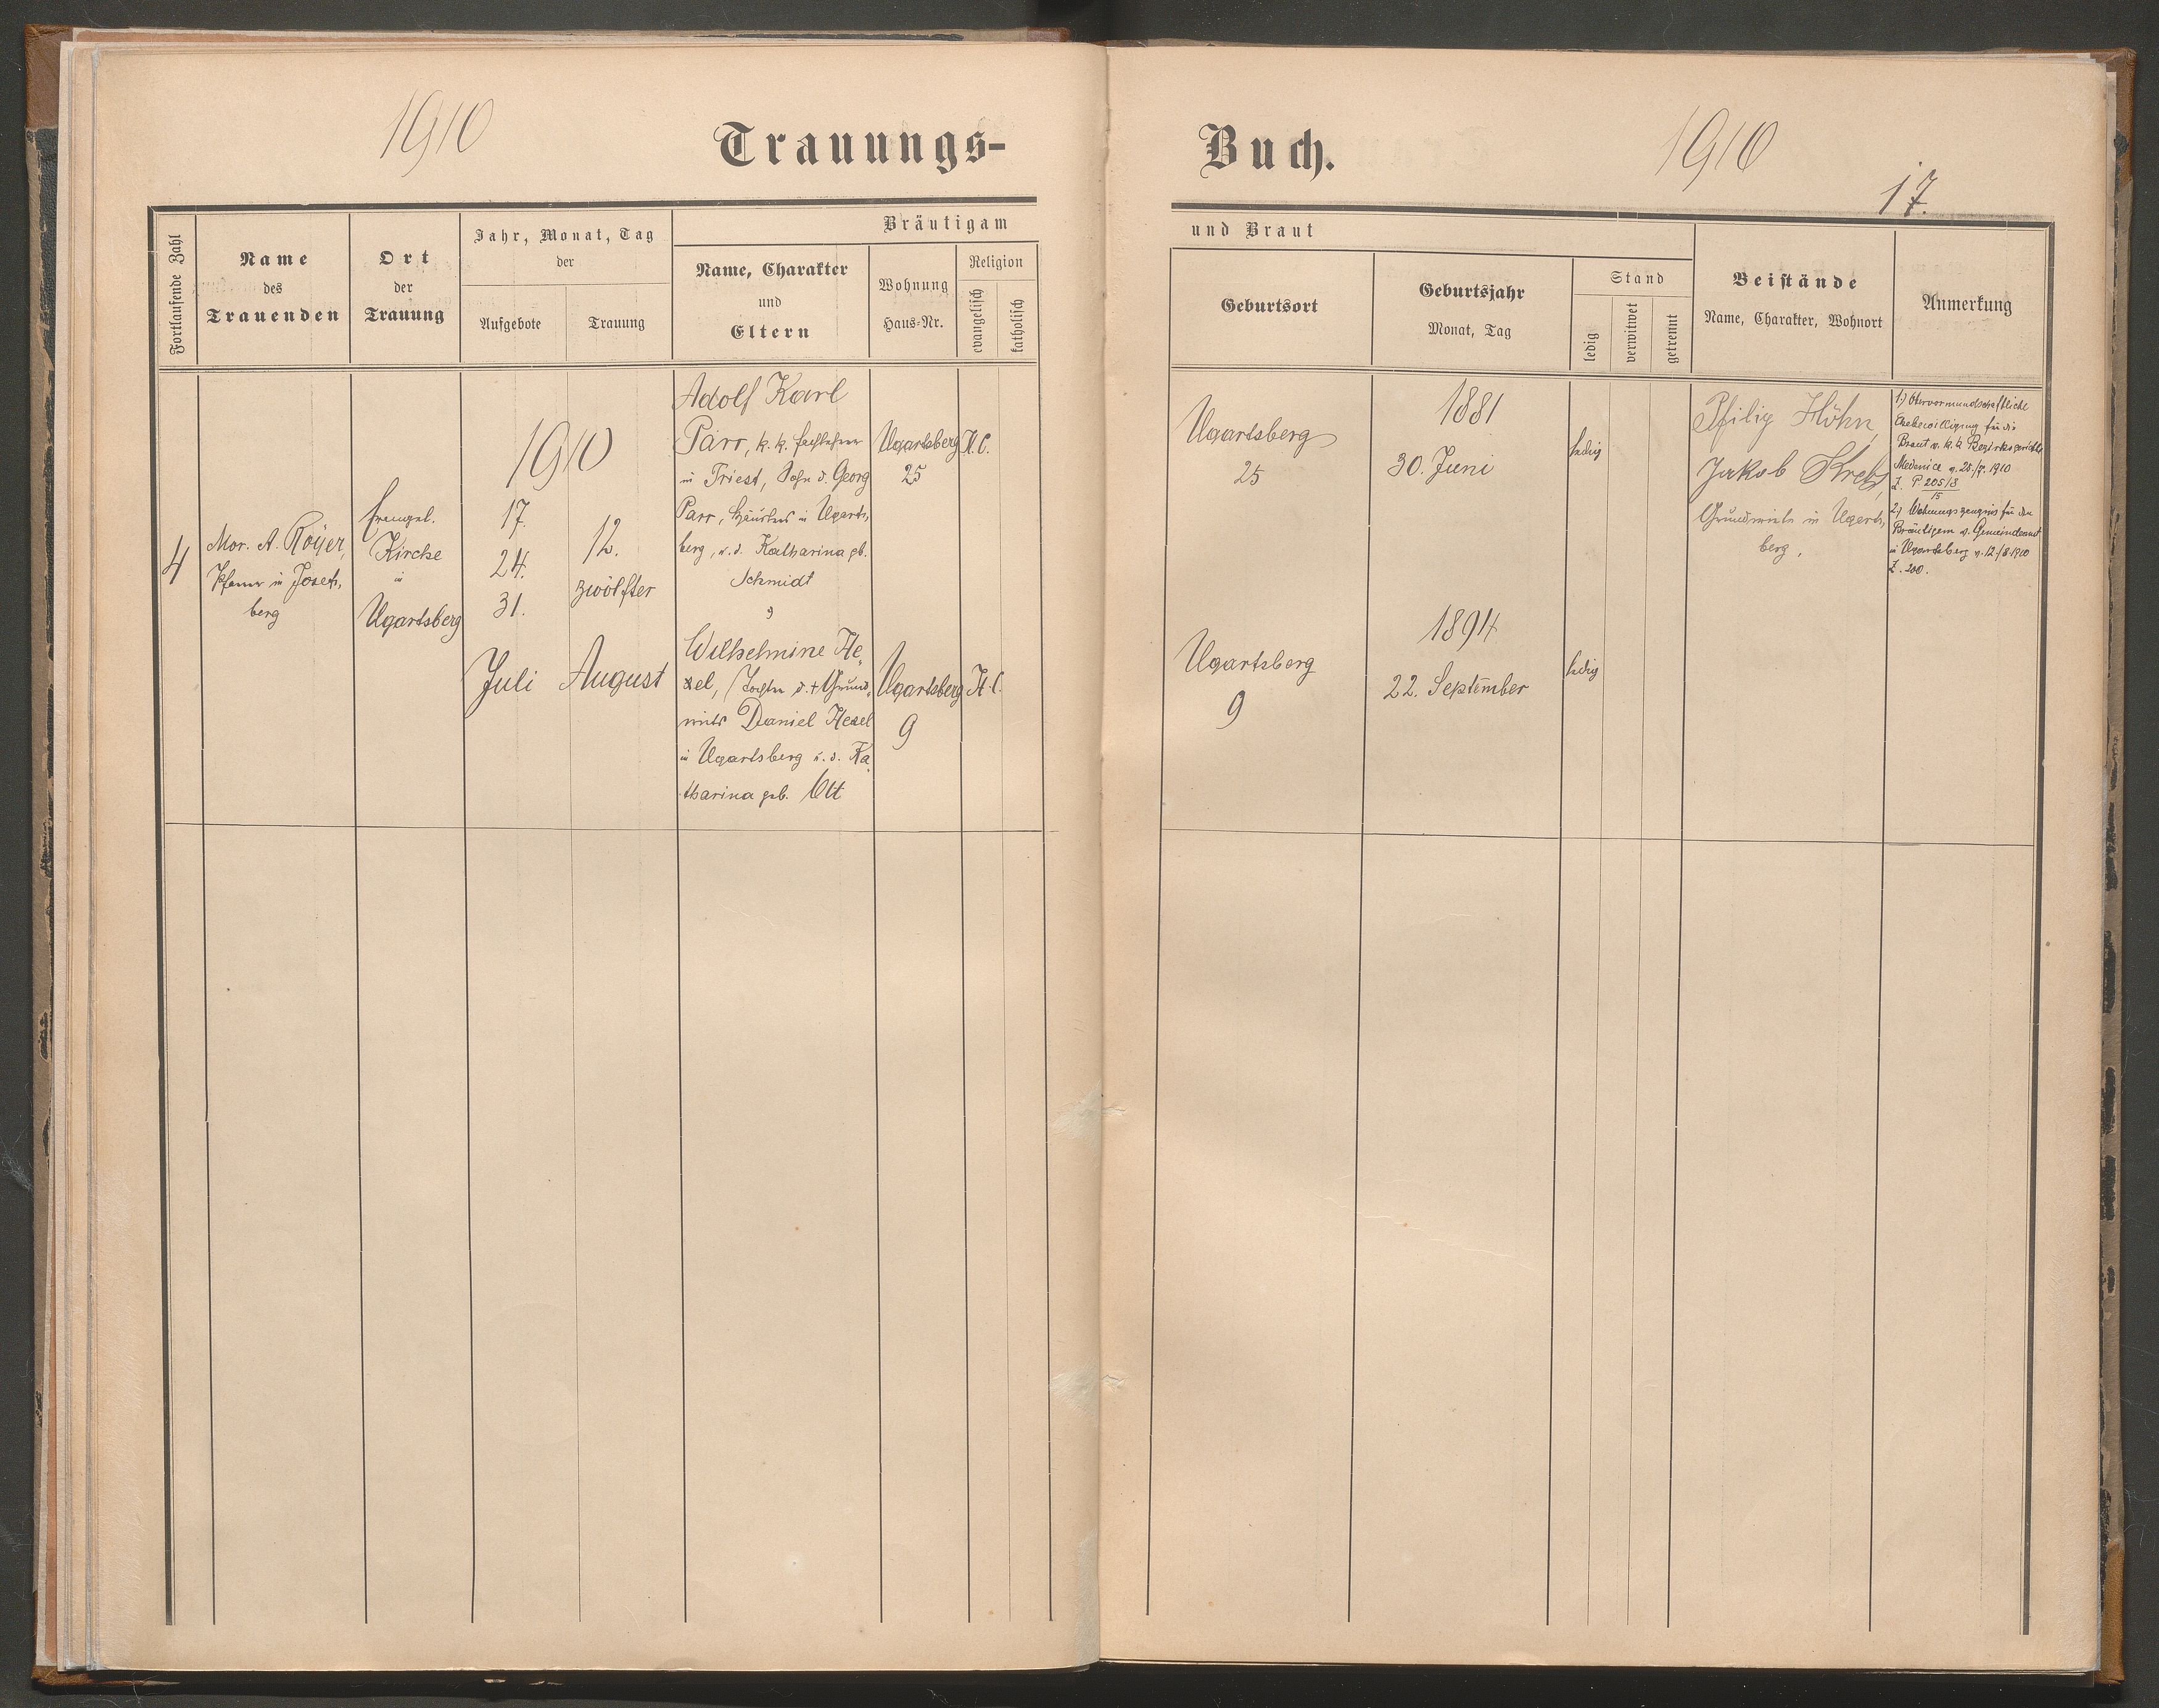 1910
Trauungs-
Buch.
1910
17.
Fortlaufende Zahl
Name
des
Trauenden
Ort
der
Trauung
Jahr, Monat, Tag
der
Aufgebote
Trauung
Bräutigam
Name, Charakter
und
Eltern
Wohnung
Haus-Nr.
Religion
evangelisch
katholisch
und Braut
Geburtsort
Geburtsjahr
Monat, Tag
Stand
ledig
verwitwet
getrennt
Beistände
Name, Charakter, Wohnort
Anmerkung
4
Mor. A. Royer,
Pfarrer in Josefs,
berg
Evangel.
Kirche
in
Ugartsberg
1910
17.
24.
31.
Juli
12.
zwölfter
August
Adolf Karl
Parr, k. k. Fachlehrer
in Triest, Sohn d. Georg
Parr, Häuslers in Ugarts,
berg, u. d. Katharina gb.
Schmidt
Ugartsberg
25
H.C.
Wilhelmine He,
xel, Tochter d. + Grund,
wirts Daniel Hexel
in Ugartsberg u. d. Ka,
tharina geb. Ott
Ugartsberg
9
H.C.
Ugartsberg
25
1881
30. Juni
ledig
Ugartsberg
9
1894
22. September
ledig
Philip Höhn,
Jakob Kreb,
Grundwirte in Ugarts,
berg.
1.) Obervormundschaftliche
Ehebewilligung für die
Braut v. k. k. Bezirksgerichte
Medenice v. 28./7. 1910
Z. P. 205/8
15
2.) Wohnungszeugnis für den
Bräutigam v. Gemeindeamt
in Ugartsberg v. 12./8. 1910
Z. 200.